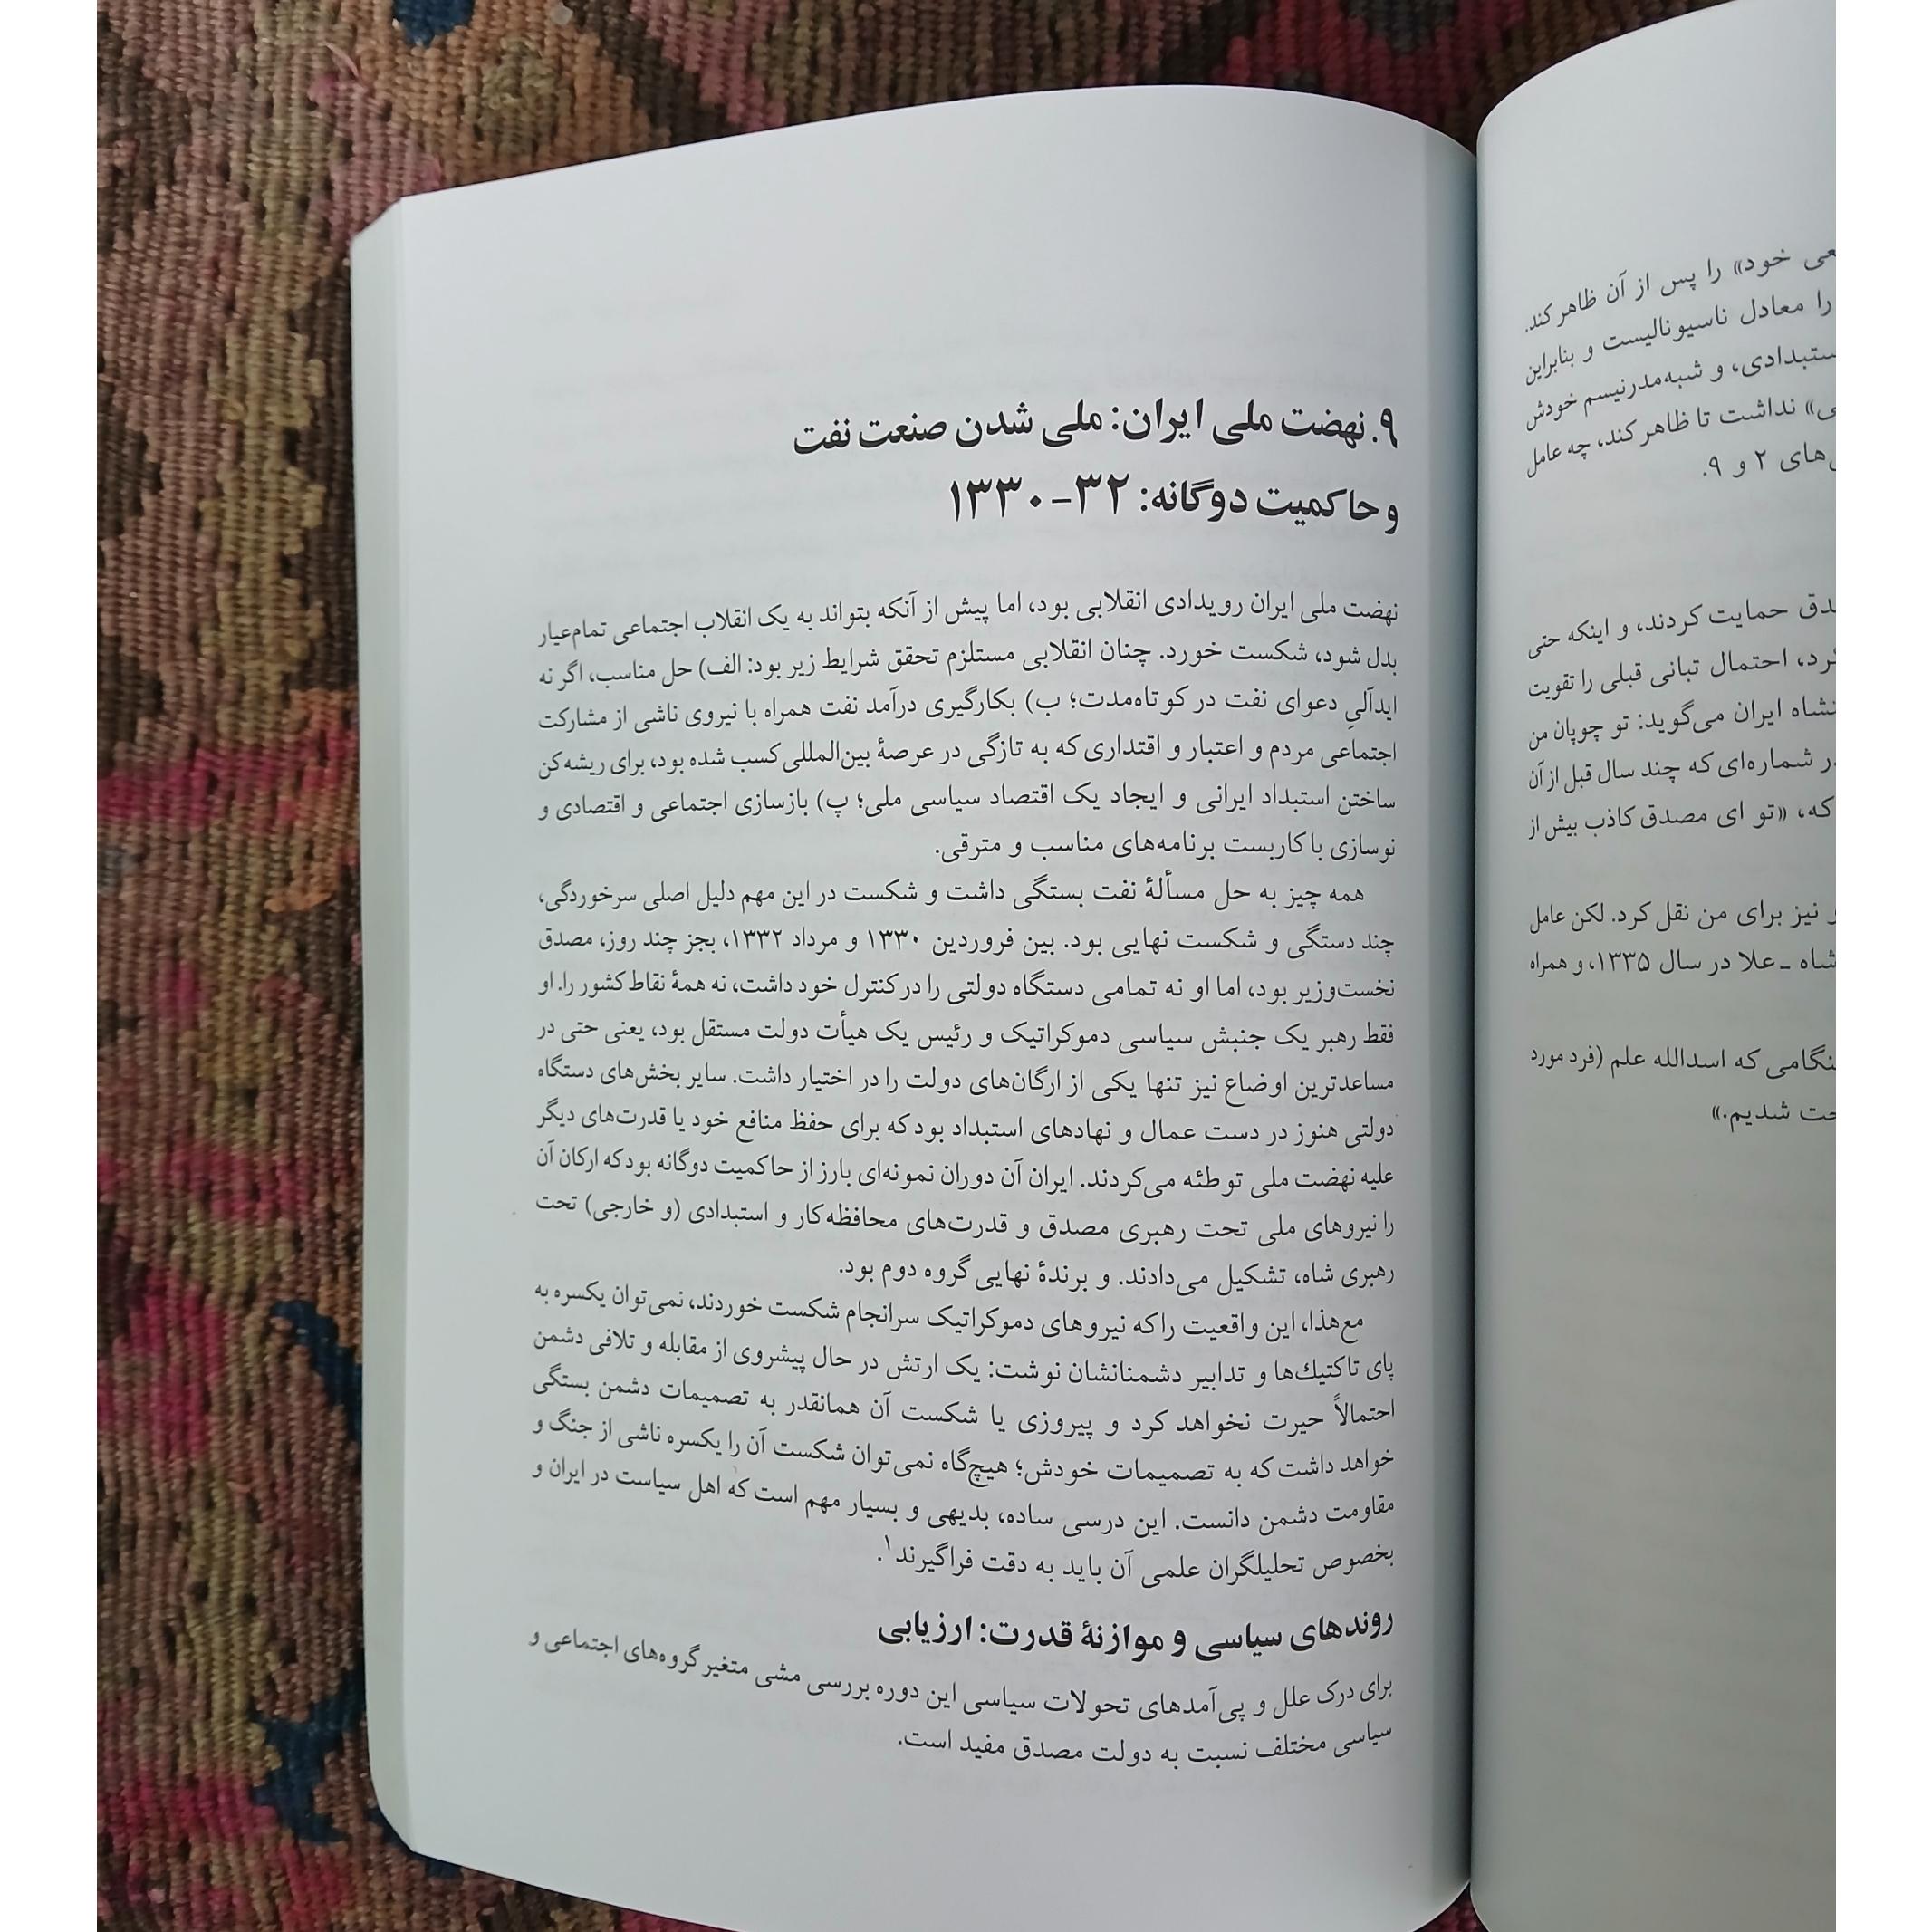 ۹. نهضت ملی ایران: ملی شدن صنعت نفت
و حاکمیت دوگانه: ۳۲-۱۳۳۰
نهضت ملی ایران رویدادی انقلابی بود، اما پیش از آنکه بتواند به یک انقلاب اجتماعی تمام‌عیار
بدل شود، شکست خورد. چنان انقلابی مستلزم تحقق شرایط زیر بود: الف) حل مناسب، اگر نه
ایدآلیِ دعوای نفت در کوتاه‌مدت؛ ب) بکارگیری درآمد نفت همراه با نیروی ناشی از مشارکت
اجتماعی مردم و اعتبار و اقتداری که به تازگی در عرصهٔ بین‌المللی کسب شده بود، برای ریشه‌کن
ساختن استبداد ایرانی و ایجاد یک اقتصاد سیاسی ملی؛ پ) بازسازی اجتماعی و اقتصادی و
نوسازی با کاربست برنامه‌های مناسب و مترقی.
همه چیز به حل مسألهٔ نفت بستگی داشت و شکست در این مهم دلیل اصلی سرخوردگی،
چند دستگی و شکست نهایی بود. بین فروردین ۱۳۳۰ و مرداد ۱۳۳۲، بجز چند روز، مصدق
نخست‌وزیر بود، اما او نه تمامی دستگاه دولتی را در کنترل خود داشت، نه همهٔ نقاط کشور را. او
فقط رهبر یک جنبش سیاسی دموکراتیک و رئیس یک هیأت دولت مستقل بود، یعنی حتی در
مساعدترین اوضاع نیز تنها یکی از ارگان‌های دولت را در اختیار داشت. سایر بخش‌های دستگاه
دولتی هنوز در دست عمال و نهادهای استبداد بود که برای حفظ منافع خود یا قدرت‌های دیگر
علیه نهضت ملی توطئه می‌کردند. ایران آن دوران نمونه‌ای بارز از حاکمیت دوگانه بود که ارکان آن
را نیروهای ملی تحت رهبری مصدق و قدرت‌های محافظه‌کار و استبدادی (و خارجی) تحت
رهبری شاه، تشکیل می‌دادند. و برندهٔ نهایی گروه دوم بود.
مع‌هذا، این واقعیت را که نیروهای دموکراتیک سرانجام شکست خوردند، نمی‌توان یکسره به
پای تاکتیك‌ها و تدابیر دشمنانشان نوشت: یک ارتش در حال پیشروی از مقابله و تلافی دشمن
احتمالاً حیرت نخواهد کرد و پیروزی یا شکست آن همانقدر به تصمیمات دشمن بستگی
خواهد داشت که به تصمیمات خودش؛ هیچ‌گاه نمی‌توان شکست آن را یکسره ناشی از جنگ و
مقاومت دشمن دانست. این درسی ساده، بدیهی و بسیار مهم است که اهل سیاست در ایران و
بخصوص تحلیلگران علمی آن باید به دقت فراگیرند۱.
روندهای سیاسی و موازنهٔ قدرت: ارزیابی
برای درک علل و پی‌آمدهای تحولات سیاسی این دوره بررسی مشی متغیر گروه‌های اجتماعی و
سیاسی مختلف نسبت به دولت مصدق مفید است.
خود» را پس از آن ظاهر کند.
را معادل ناسیونالیست و بنابراین
و شبه‌مدرنیسم خودش
نداشت تا ظاهر کند، چه عامل
۲ و ۹.
حمایت کردند، و اینکه حتی
احتمال تبانی قبلی را تقویت
ایران می‌گوید: تو چوپان من
شماره‌ای که چند سال قبل از آن
که، «تو ای مصدق کاذب بیش از
نیز برای من نقل کرد. لکن عامل
شاه ـ علا در سال ۱۳۳۵، و همراه
که اسدالله علم (فرد مورد
شدیم.»